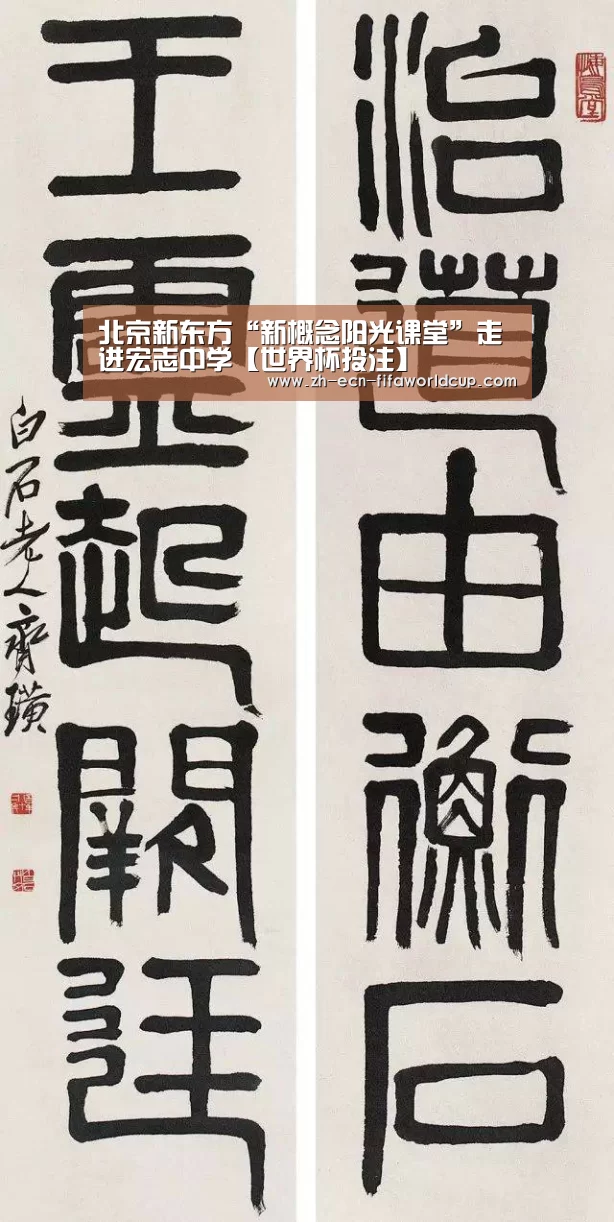 治道由衡石
王靈起闕廷
白石老人齊璜
北京新东方“新概念阳光课堂”走
进宏志中学【世界杯投注】
www.zh-ecn-fifaworldcup.com